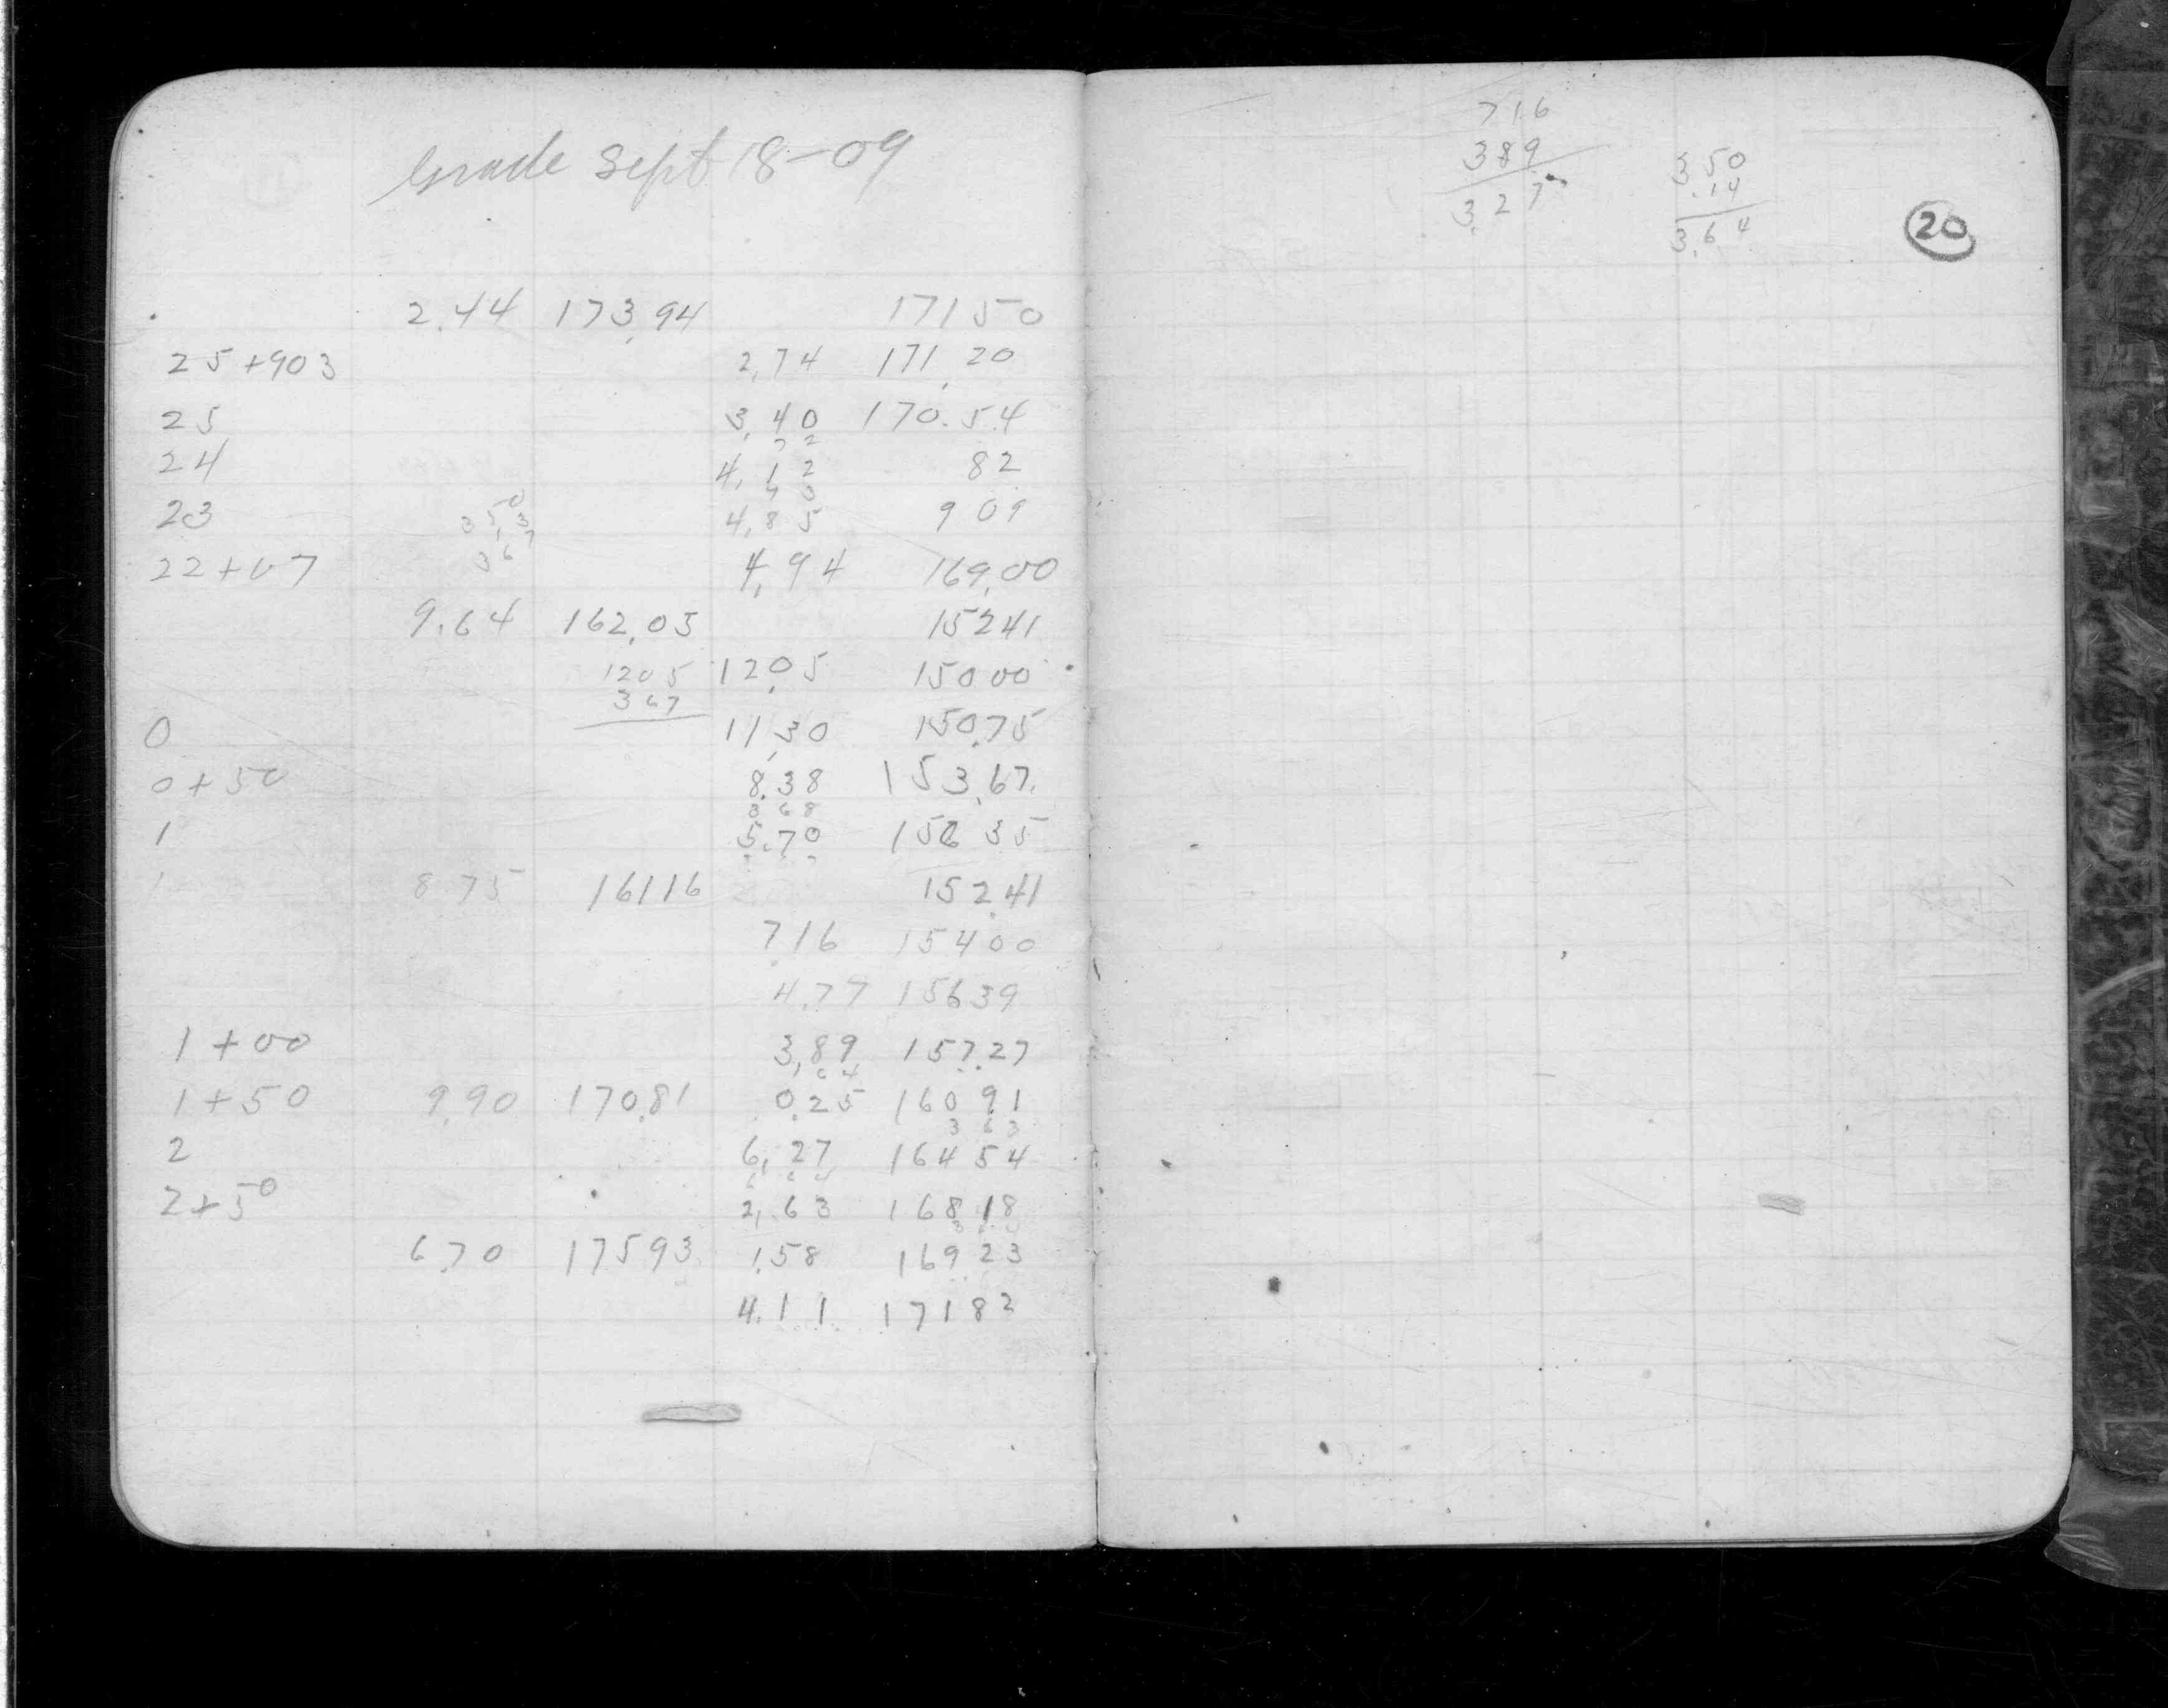 Grade Sept 18-09
2.44 173.94 17150
25+903 2.74 171.20
25 3.40 170.54
72
24 4.12 82
23 4.85 909
350
367
22+07 4.94 169.00
9.64 162.05 15241
1205 12.05 15000
367
0 11.30 150.75
0+50 8.38 153.67
368
1 5.70 156 35
1 8 75 16116 152.41
7.16 15400
4.77 15639
1+00 3.89 157.27
1+50 9.90 170.81 0.25 160 91
363
2 6.27 164 54
2+50 2.63 168 18
6.70 17593 1.58 169.23
4.11 17182
716
389
3.27
350
.14
3.64
20